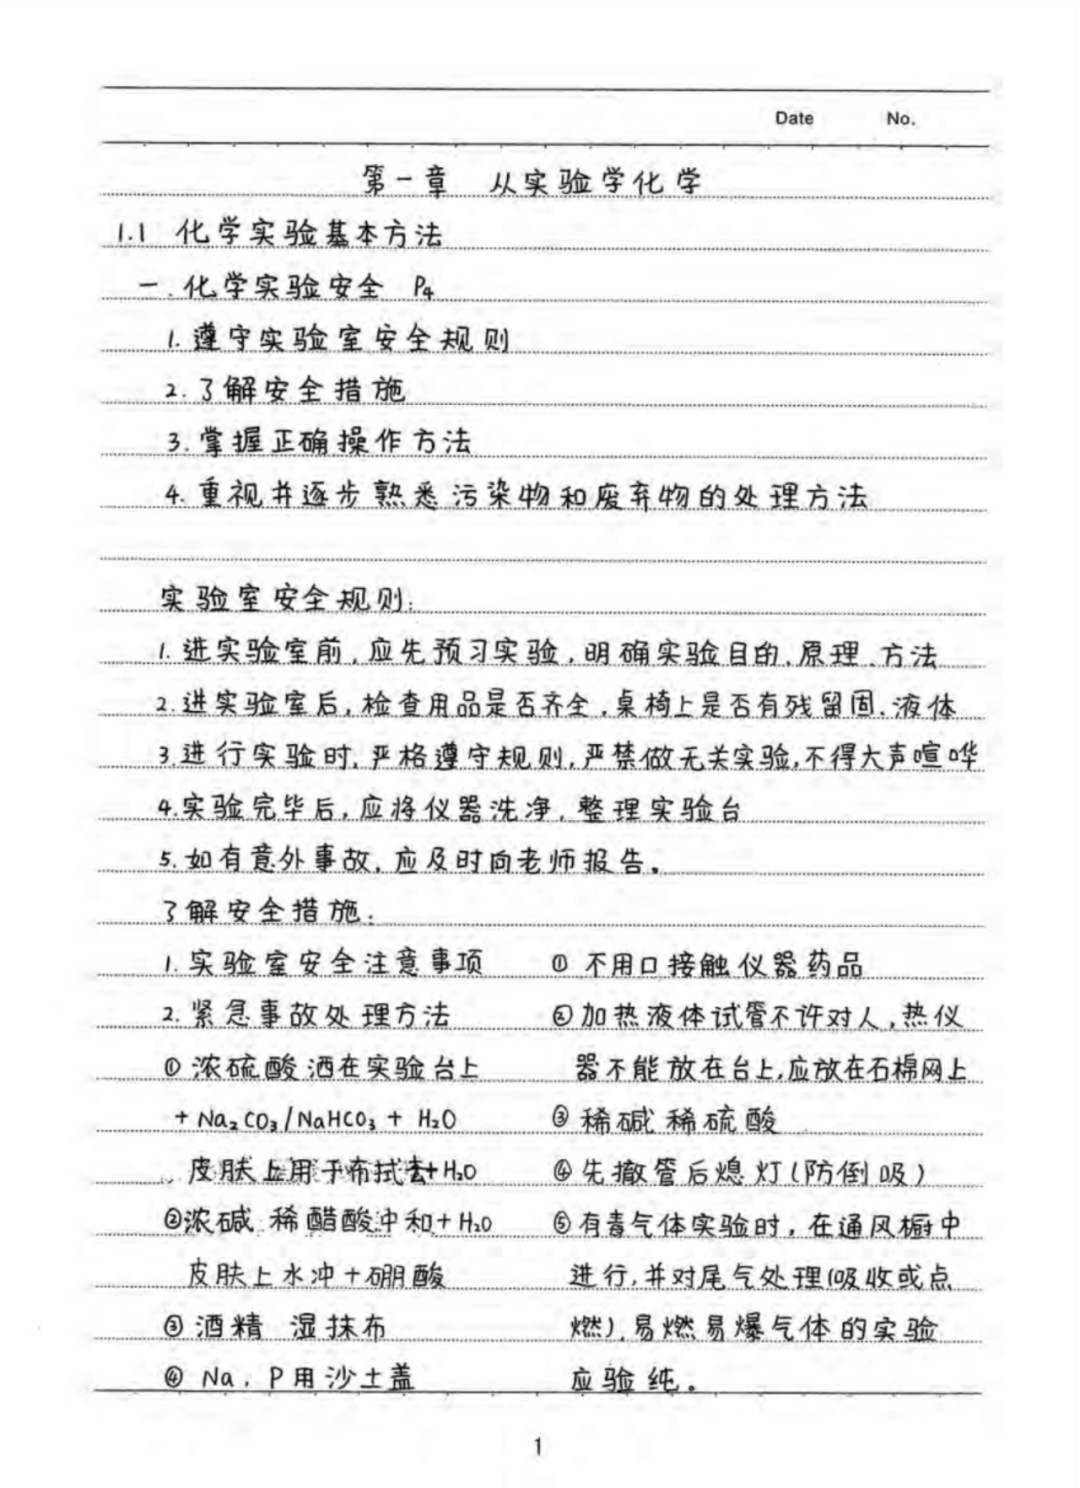 Date No.
第一章 从实验学化学
1.1 化学实验基本方法
一.化学实验安全 P4
1.遵守实验室安全规则
2.了解安全措施
3.掌握正确操作方法
4.重视并逐步熟悉污染物和废弃物的处理方法
实验室安全规则:
1.进实验室前,应先预习实验,明确实验目的、原理、方法
2.进实验室后,检查用品是否齐全,桌椅上是否有残留固、液体
3.进行实验时,严格遵守规则,严禁做无关实验,不得大声喧哗
4.实验完毕后,应将仪器洗净,整理实验台
5.如有意外事故,应及时向老师报告。
了解安全措施:
1.实验室安全注意事项
2.紧急事故处理方法
①浓硫酸洒在实验台上
+Na₂CO₃/NaHCO₃+H₂O
皮肤上用干布拭去+H₂O
②浓碱:稀醋酸冲和+H₂O
皮肤上水冲+硼酸
③酒精 湿抹布
④Na、P用沙土盖
①不用口接触仪器药品
②加热液体试管不许对人,热仪
器不能放在台上,应放在石棉网上
③稀碱 稀硫酸
④先撤管后熄灯(防倒吸)
⑤有毒气体实验时,在通风橱中
进行,并对尾气处理(吸收或点
燃),易燃易爆气体的实验
应验纯。
1